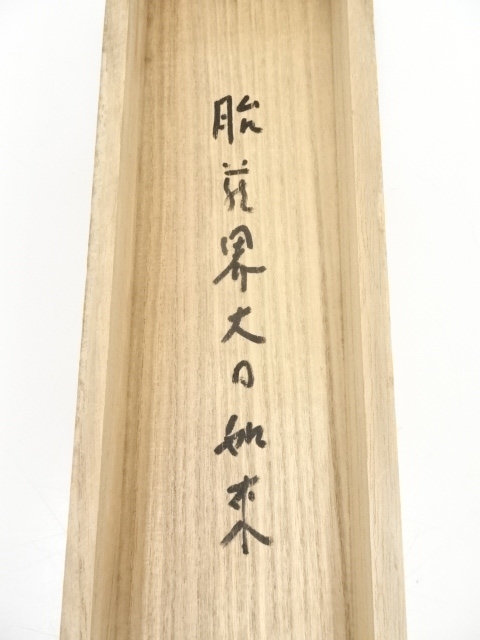 胎蔵界大日如来